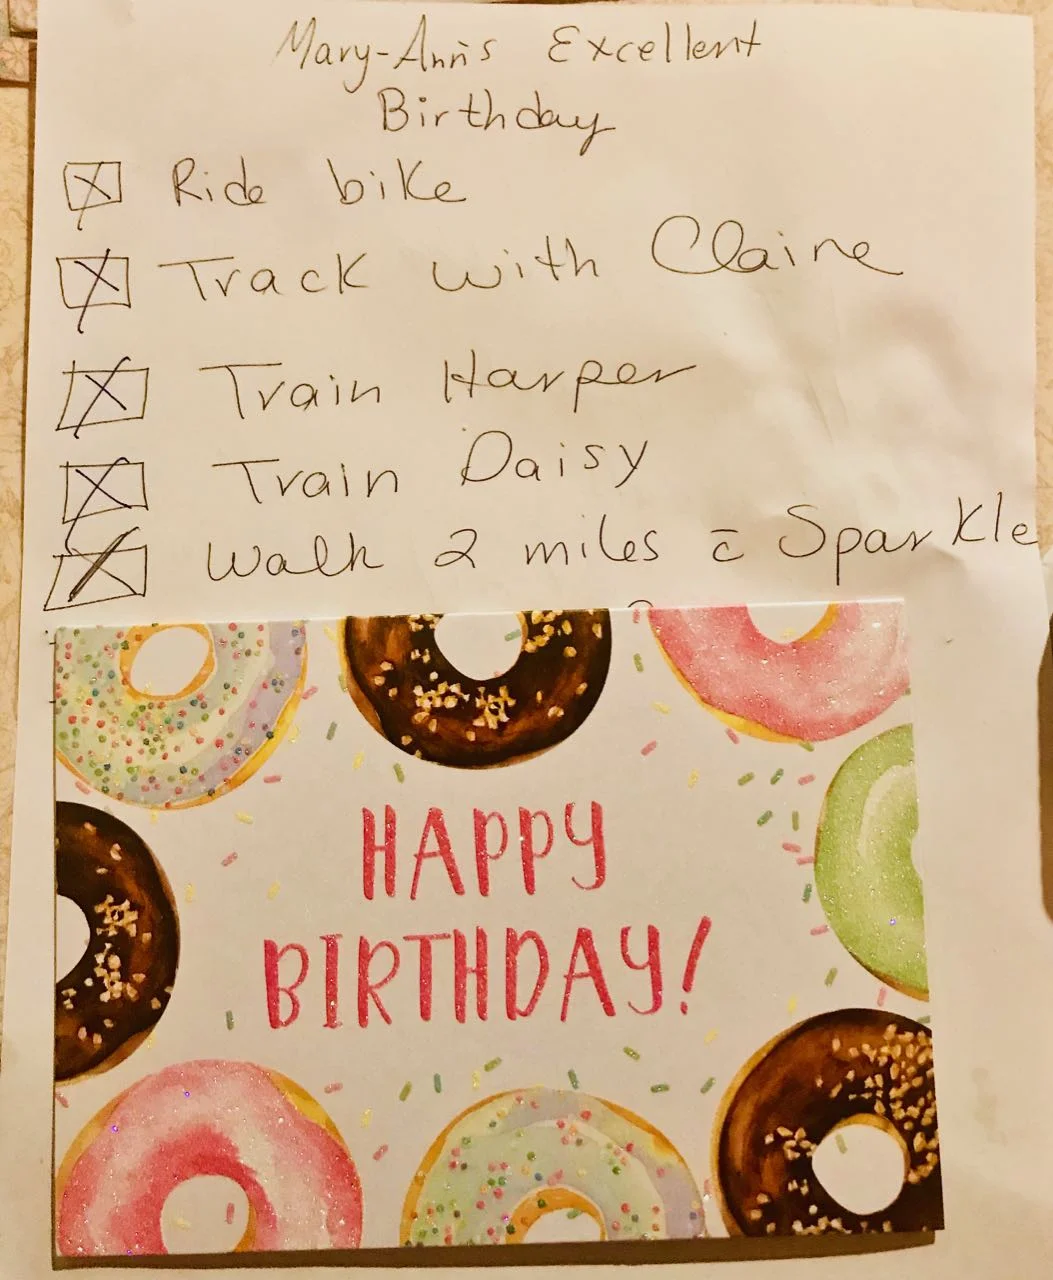 Mary-Ann's Excellent
Birthday
Ride bike
Track with Claire
Train Harper
Train Daisy
Walk 2 miles c̄ Sparkle
HAPPY
BIRTHDAY!